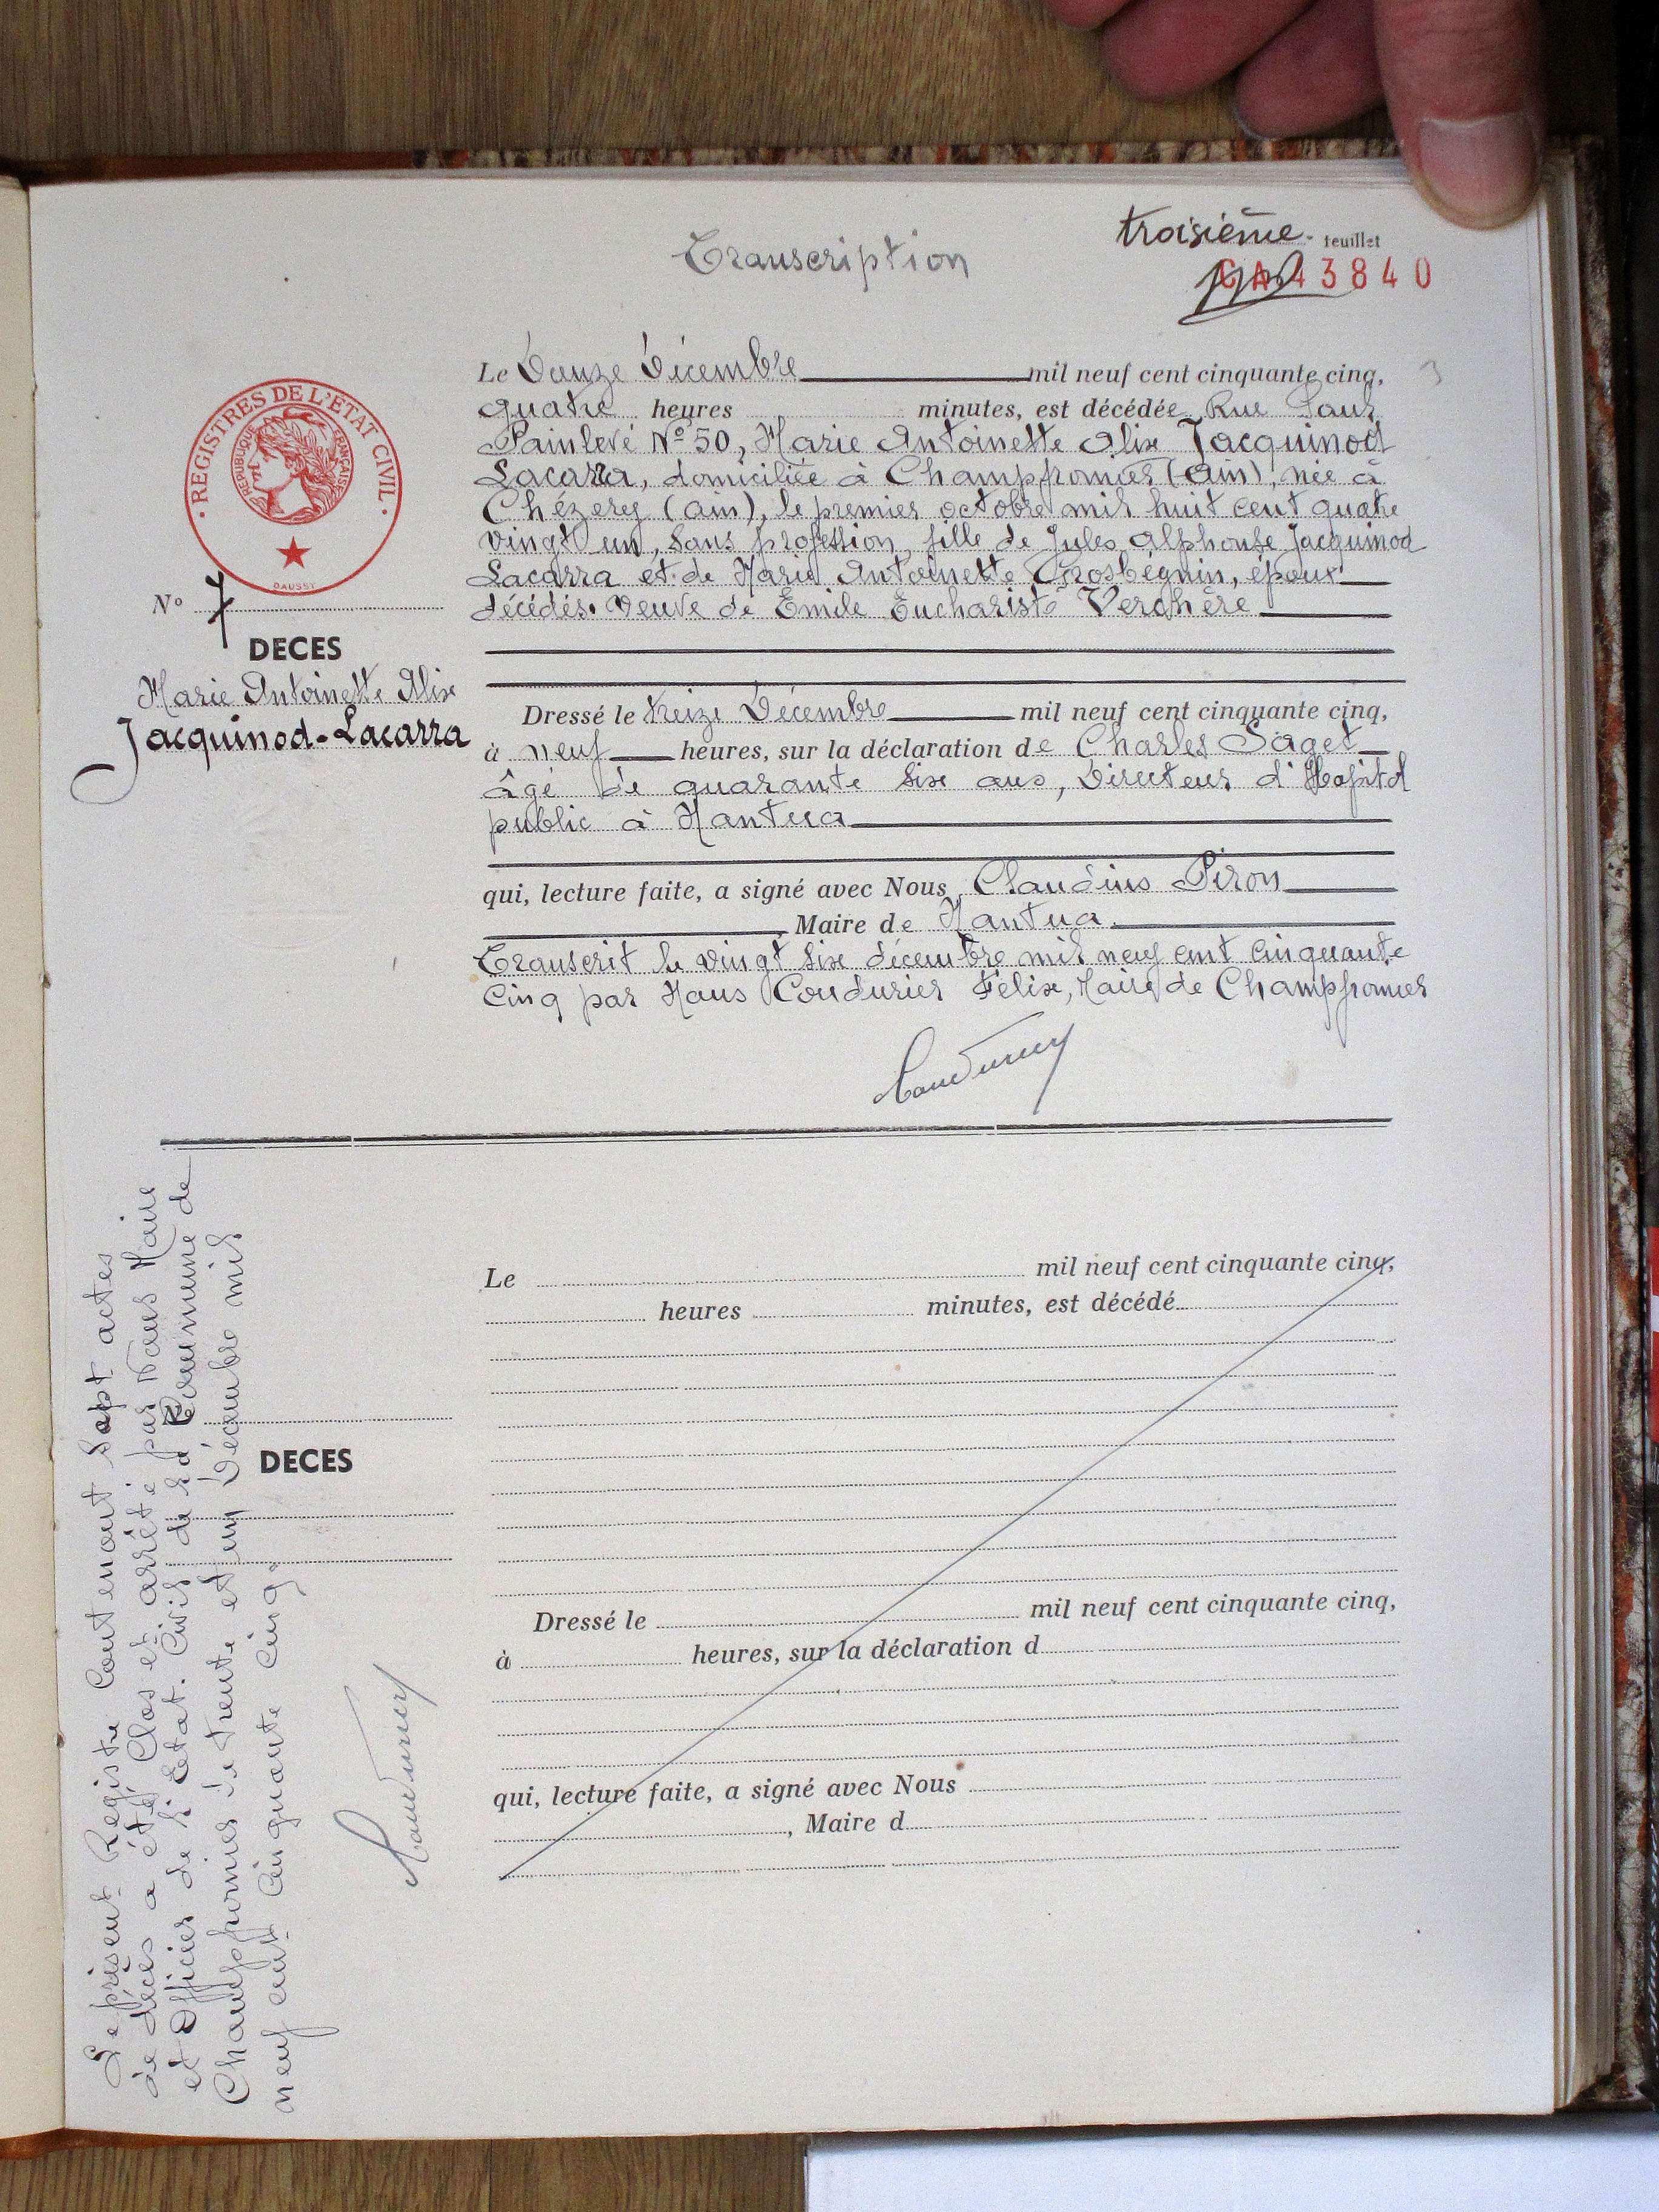 troisième feuillet
Transcription
CA 43840
3
REGISTRES DE L'ETAT CIVIL
REPUBLIQUE FRANÇAISE
DAUSSY
N° 7
DECES
Marie Antoinette Alix
Jacquinod-Lacarra
Le Douze Décembre mil neuf cent cinquante cinq,
quatre heures minutes, est décédée Rue Paul
Painlevé N° 50, Marie Antoinette Alix Jacquinod
Lacarra, domiciliée à Champfromier (Ain), née à
Chézery (Ain), le premier octobre mil huit cent quatre
vingt un, sans profession, fille de Jules Alphonse Jacquinod
Lacarra et de Marie Antoinette Grosbegnin, époux
décédés. Veuve de Emile Euchariste Verchère
Dressé le treize Décembre mil neuf cent cinquante cinq,
à neuf heures, sur la déclaration de Charles Saget
âgé de quarante six ans, Directeur d'Hopital
public à Nantua
qui, lecture faite, a signé avec Nous, Claudius Piron
Maire de Nantua.
Transcrit le vingt six décembre mil neuf cent cinquante
cinq par Nous Coudurier Félix, Maire de Champfromier
Coudurier
Le mil neuf cent cinquante cinq,
heures minutes, est décédé
N°
DECES
Dressé le mil neuf cent cinquante cinq,
à heures, sur la déclaration d
qui, lecture faite, a signé avec Nous
, Maire d
Le présent Registre Contenant Sept actes
de décès a été Clos et arrêté par Nous Maire
et Officier de l'Etat. Civil de la Commune de
Champfromier le trente et un Décembre mil
neuf cent cinquante cinq.
Coudurier